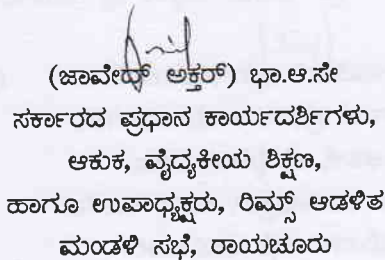 (ಜಾವೇದ್ ಅಕ್ತರ್) ಭಾ.ಆ.ಸೇ
ಸರ್ಕಾರದ ಪ್ರಧಾನ ಕಾರ್ಯದರ್ಶಿಗಳು,
ಆಕುಕ, ವೈದ್ಯಕೀಯ ಶಿಕ್ಷಣ,
ಹಾಗೂ ಉಪಾಧ್ಯಕ್ಷರು, ರಿಮ್ಸ್ ಆಡಳಿತ
ಮಂಡಳಿ ಸಭೆ, ರಾಯಚೂರು